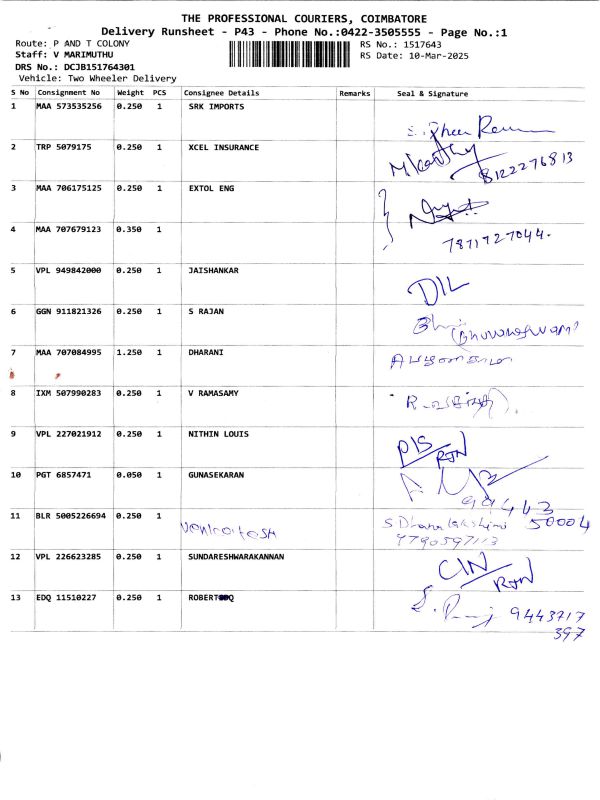 THE PROFESSIONAL COURIERS, COIMBATORE
Delivery Runsheet - P43 - Phone No.:0422-3505555 - Page No.:1
Route: P AND T COLONY RS No.: 1517643
Staff: V MARIMUTHU RS Date: 10-Mar-2025
DRS No.: DCJB151764301
Vehicle: Two Wheeler Delivery
S No Consignment No Weight PCS Consignee Details Remarks Seal & Signature
1 MAA 573535256 0.250 1 SRK IMPORTS
2 TRP 5079175 0.250 1 XCEL INSURANCE
8122276813
3 MAA 706175125 0.250 1 EXTOL ENG
4 MAA 707679123 0.350 1
7871727044.
5 VPL 949842000 0.250 1 JAISHANKAR
DIL
6 GGN 911821326 0.250 1 S RAJAN
7 MAA 707084995 1.250 1 DHARANI
8 IXM 507990283 0.250 1 V RAMASAMY
9 VPL 227021912 0.250 1 NITHIN LOUIS
DIS/RTN
10 PGT 6857471 0.050 1 GUNASEKARAN
99443
11 BLR 5005226694 0.250 1 S Dhanalakshmi 50004
9790597113
12 VPL 226623285 0.250 1 SUNDARESHWARAKANNAN
CIN/RTN
13 EDQ 11510227 0.250 1
9443717
397